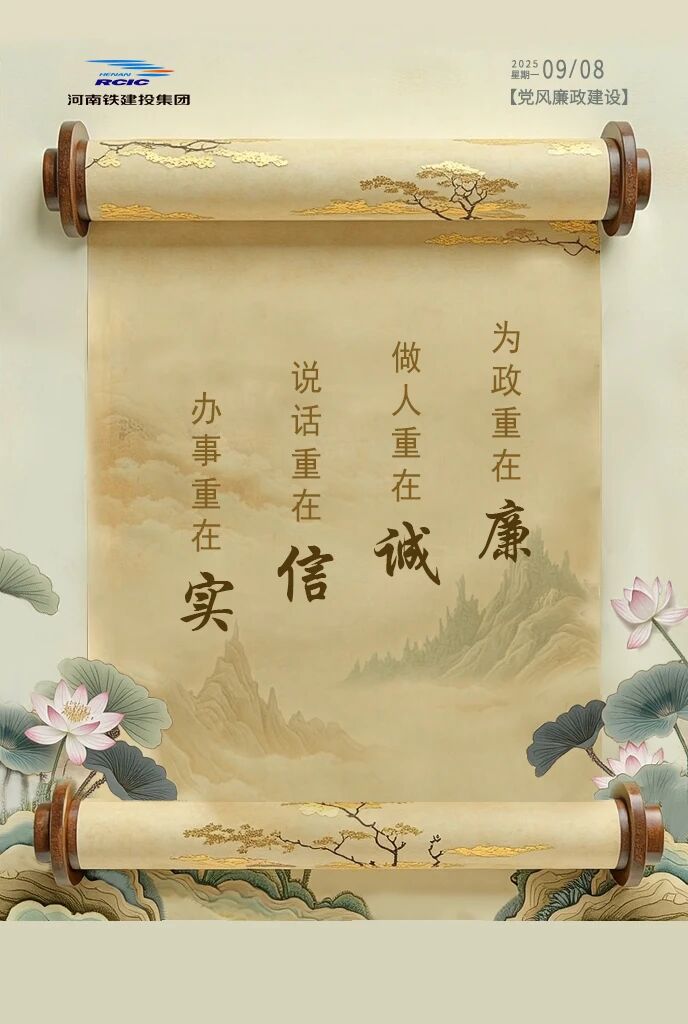 HENAN
RCIC
河南铁建投集团
2025
星期一
09/08
【党风廉政建设】
为政重在廉
做人重在诚
说话重在信
办事重在实